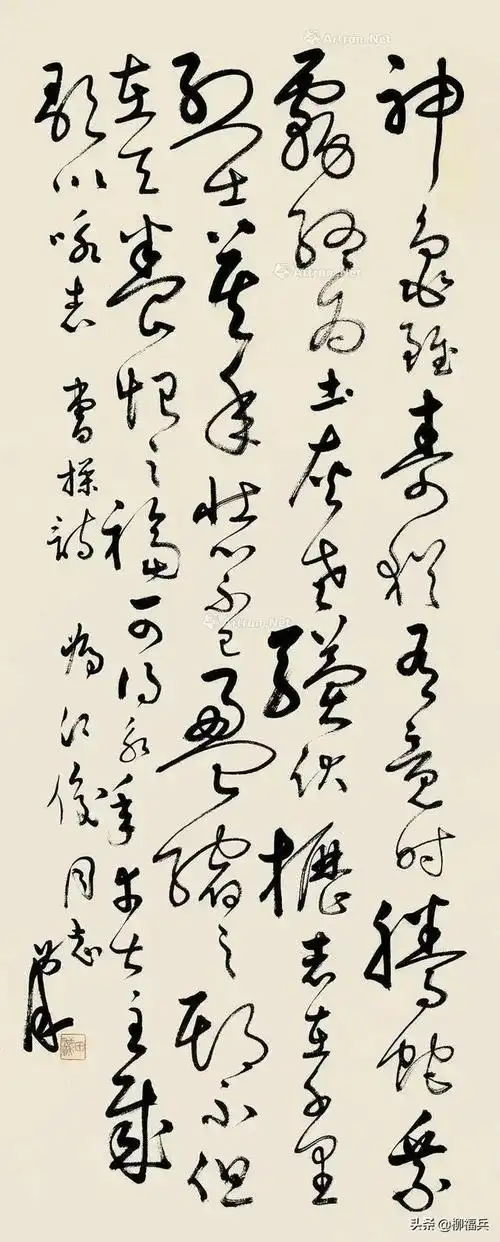 神龜雖壽猶有竟時騰蛇乘
霧終為土灰老驥伏櫪志在千里
烈士暮年壯心不已盈縮之期不但
在天養怡之福可得永年幸甚至哉
歌以咏志 曹操詩 為江俊同志
Artron.Net
Artron.Net
Artron.Net
头条 @柳福兵